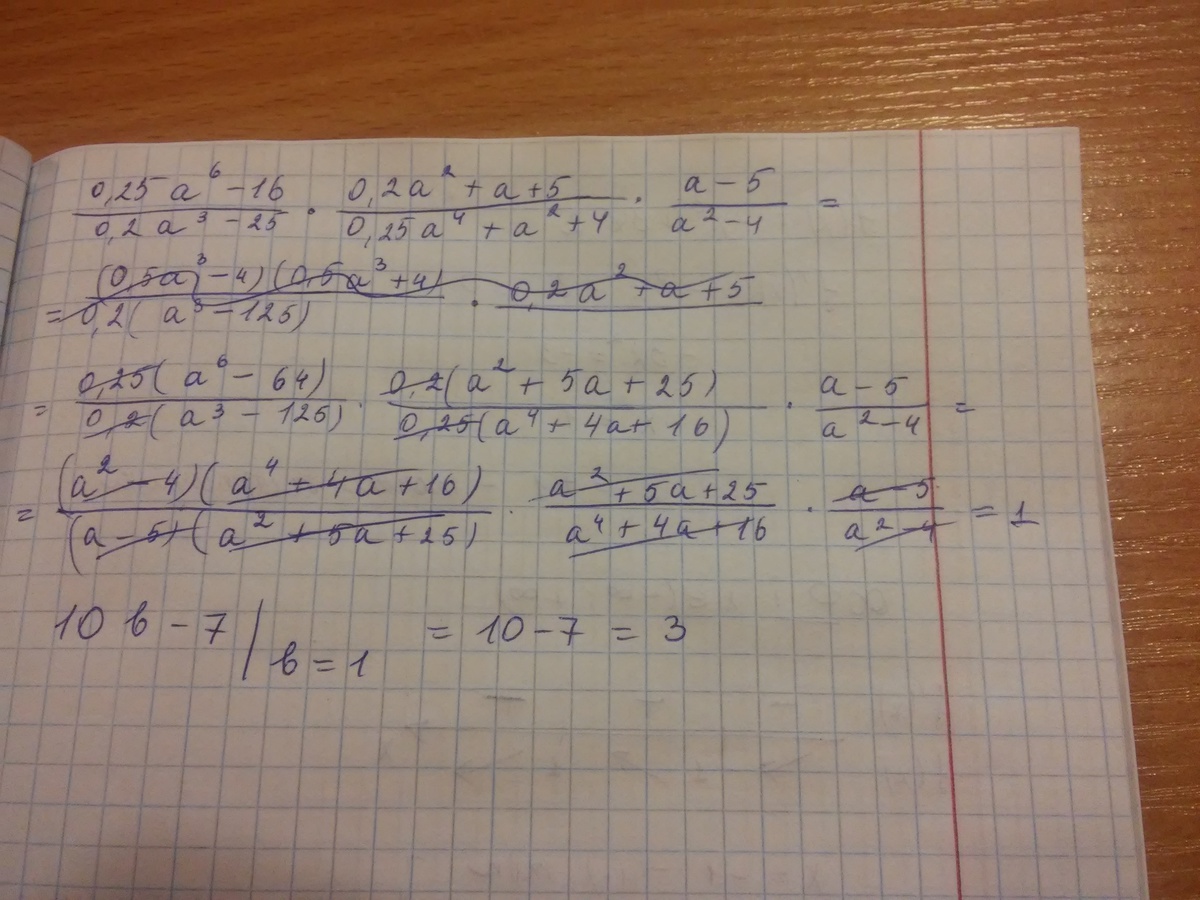 (0,25a⁶ − 16)/(0,2a³ − 25) · (0,2a² + a + 5)/(0,25a⁴ + a² + 4) · (a − 5)/(a² − 4) =
= (0,5a³ − 4)(0,5a³ + 4)/0,2(a³ − 125) · 0,2a² + a + 5
= 0,25(a⁶ − 64)/0,2(a³ − 125) · 0,2(a² + 5a + 25)/0,25(a⁴ + 4a + 16) · (a − 5)/(a² − 4) =
= (a² − 4)(a⁴ + 4a + 16)/(a − 5)(a² + 5a + 25) · (a² + 5a + 25)/(a⁴ + 4a + 16) · (a − 5)/(a² − 4) = 1
10 b − 7 | b = 1 = 10 − 7 = 3